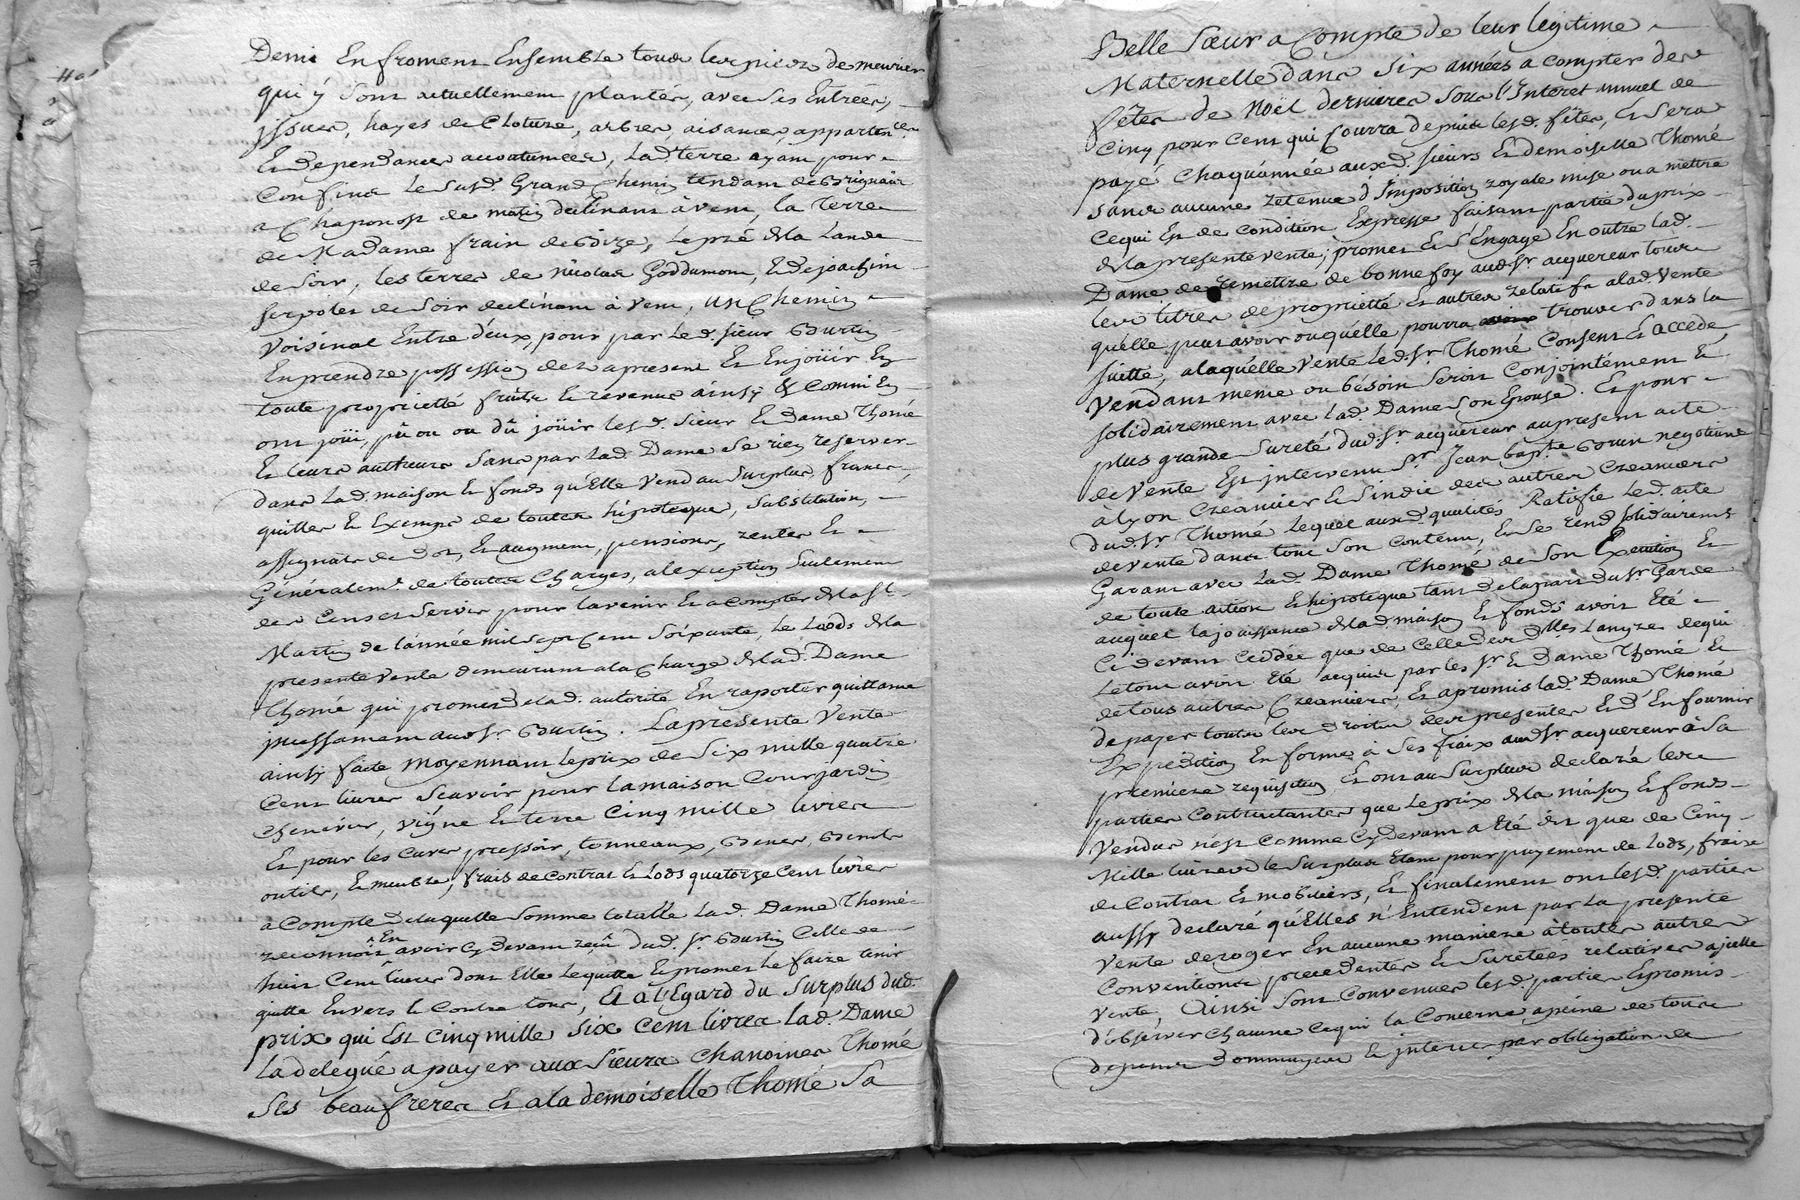 Demi En froment Ensemble tous les pieds de meurier
qui y sont actuellement plantés, avec ses Entrées,
issues, hayes de Cloture, arbres aisances, appartences
Et dependances accoutumées, Lad. terre ayant pour
Confins le susd. Grand Chemin tendant de Brignais
a Chaponost de matin declinant à vent, la Terre
de Madame frain de , Le pré de la Lande
de soir, les terres de Nicolas Goddumom, Et de joachim
de soir declinant à vent, un Chemin
Voisinal Entre deux, pour par Led. sieur Bourtin
En prendre possession dez a present Et En joüir En
toute proprietté fruits Et revenus ainsy & Comm'En
ont joüi, pû ou dû joüir lesd. Sieur Et Dame Thomé
Et leurs autheurs Sans par Lad. Dame se rien reserver
dans Lad. maison Et fonds qu'Elle Vend au surplus francs,
quittes Et Exempts de toutes hipoteques, substitution,
assignats de dot, Et augment, pensions, rentes Et
Généralemt. de toutes Charges, a l'exception seulement
des Cens et servis pour l'avenir Et a compter de la St.
Martin de l'année mil sept Cent soixante, Le Lods de la
presente vente demeurant a la Charge de lad. Dame
Thomé qui promet de lad. autorité En raporter quittance
incessament aud. Sr. Bourtin. La presente Vente
ainsy faite moyennant le prix de Six mille quatre
Cent livres scavoir pour la maison Cour jardin
chenevier, vigne Et terre Cinq mille livres
Et pour les Cuves pressoir, tonneaux,
outils, Et meubles, frais de Contrat Et Lods quatorze Cent livres
a Compte de laquelle somme totalle Lad. Dame Thomé
reconnoit En avoir Cy devant reçû dud. Sr. Bourtin Celle de
huit Cent livres dont Elle Le quitte Et promet Le faire tenir
quitte Envers Et Contre tous, Et a l'Egard du surplus dud.
prix qui Est Cinq mille six Cent livres Lad. Dame
La delegué a payer aux sieurs Chanoines Thomé
ses beaufreres Et a la demoiselle Thomé Sa
Belle Sœur a Compte de leur legitime
Maternelle dans six années a compter des
fêtes de Noël dernieres sous l'Interet annuel de
Cinq pour Cent qui Courra depuis lesd. fêtes, Et sera
payé Chaquannée auxd. sieurs Et demoiselle Thomé
sans aucune retenue d'Imposition royale mise ou a mettre
Ce qui Est de Condition Expresse faisant partie du prix
de la presente vente; promet Et s'Engage En outre Lad.
Dame de remettre de bonne foy aud. Sr. acquereur tous
les titres de proprietté Et autres relatifs a lad. Vente
qu'elle peut avoir ou qu'elle pourra trouver dans la
suitte, a laquelle Vente Led. Sr. Thomé Consent Et accede
Vendant meme ou bésoin seroit Conjointement Et
solidairement avec Lad. Dame son Epouse. Et pour
plus grande sureté dud. Sr. acquereur au present acte
de vente Est intervenu Sr. Jean Bapte. Borun negotiant
à Lyon Creancier Et sindic des autres Creanciers
dud. Sr. Thomé Lequel auxd. qualités Ratiffie Led. acte
de vente dans tout son Contenu, Et se rend solidairement
Garant avec Lad. Dame Thomé de son Execution Et
de toute action Et hipoteque tant de la part du Sr. Garde
auquel la joüissance de lad. maison Et fonds avoit Eté
Ci devant Ceddée que de Celle des dlles. Lanyre de qui
Le tout avoit Eté acquis par les Sr. Et Dame Thomé Et
de tous autres Creanciers, Et a promis lad. Dame Thomé
de payer toutes les droits des presentes Et d'En fournir
Expedition En forme a ses fraix aud. Sr. acquereur à Sa
premiere requisition Et ont au surplus declaré les
parties Contractantes que Le prix de la maison Et fonds
Vendus n'est comme Cy devant a Eté dit que de Cinq
Mille livres le surplus Etant pour payement de Lods, fraix
de Contrat Et mobiliers, Et finalement ont lesd. parties
aussy declaré qu'Elles n'Entendent par La presente
Vente deroger En aucune maniere à toutes autres
Conventions precedentes Et suretées relatives a jcelle
Vente, Ainsi sont Convenues lesd. parties Et promis
d'observer Chacune Ce qui la Concerne a peine de tous
depens dommages Et interets par obligation de